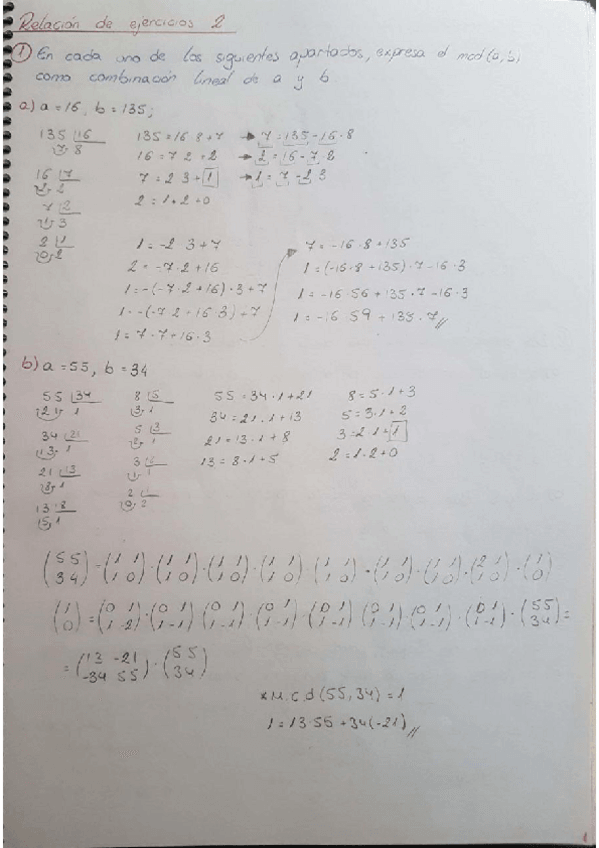 Relación de ejercicios 2
① En cada uno de los siguientes apartados, expresa el mcd(a,b)
como combinación lineal de a y b
a) a = 16, b = 135;
135 |16
7 8
135 = 16·8+7 → 7 = 135-16·8
16 |7
2 2
16 = 7·2+2 → 2 = 16-7·2
7 |2
1 3
7 = 2·3+1 → 1 = 7-2·3
2 |1
0 2
2 = 1·2+0
1 = -2·3+7
2 = -7·2+16
1 = -(-7·2+16)·3+7
1 = -(-7·2+16·3)+7
1 = 7·7+16·3
7 = -16·8+135
1 = (-16·8+135)·7-16·3
1 = -16·56+135·7-16·3
1 = -16·59+135·7//
b) a = 55, b = 34
55 |34
21 1
34 |21
13 1
21 |13
8 1
13 |8
5 1
8 |5
3 1
5 |3
2 1
3 |2
1 1
2 |1
0 2
55 = 34·1+21
34 = 21·1+13
21 = 13·1+8
13 = 8·1+5
8 = 5·1+3
5 = 3·1+2
3 = 2·1+1
2 = 1·2+0
(55 34) = (1 1 1 0)·(1 1 1 0)·(1 1 1 0)·(1 1 1 0)·(1 1 1 0)·(1 1 1 0)·(1 1 1 0)·(2 1 1 0)·(1 0)
(1 0) = (0 1 1 -2)·(0 1 1 -1)(0 1 1 -1)(0 1 1 -1)·(0 1 1 -1)(0 1 1 -1)(0 1 1 -1)·(0 1 1 -1)·(55 34) =
= (13 -21 -34 55)·(55 34)
* M.c.d (55,34) = 1
1 = 13·55+34(-21)//
1